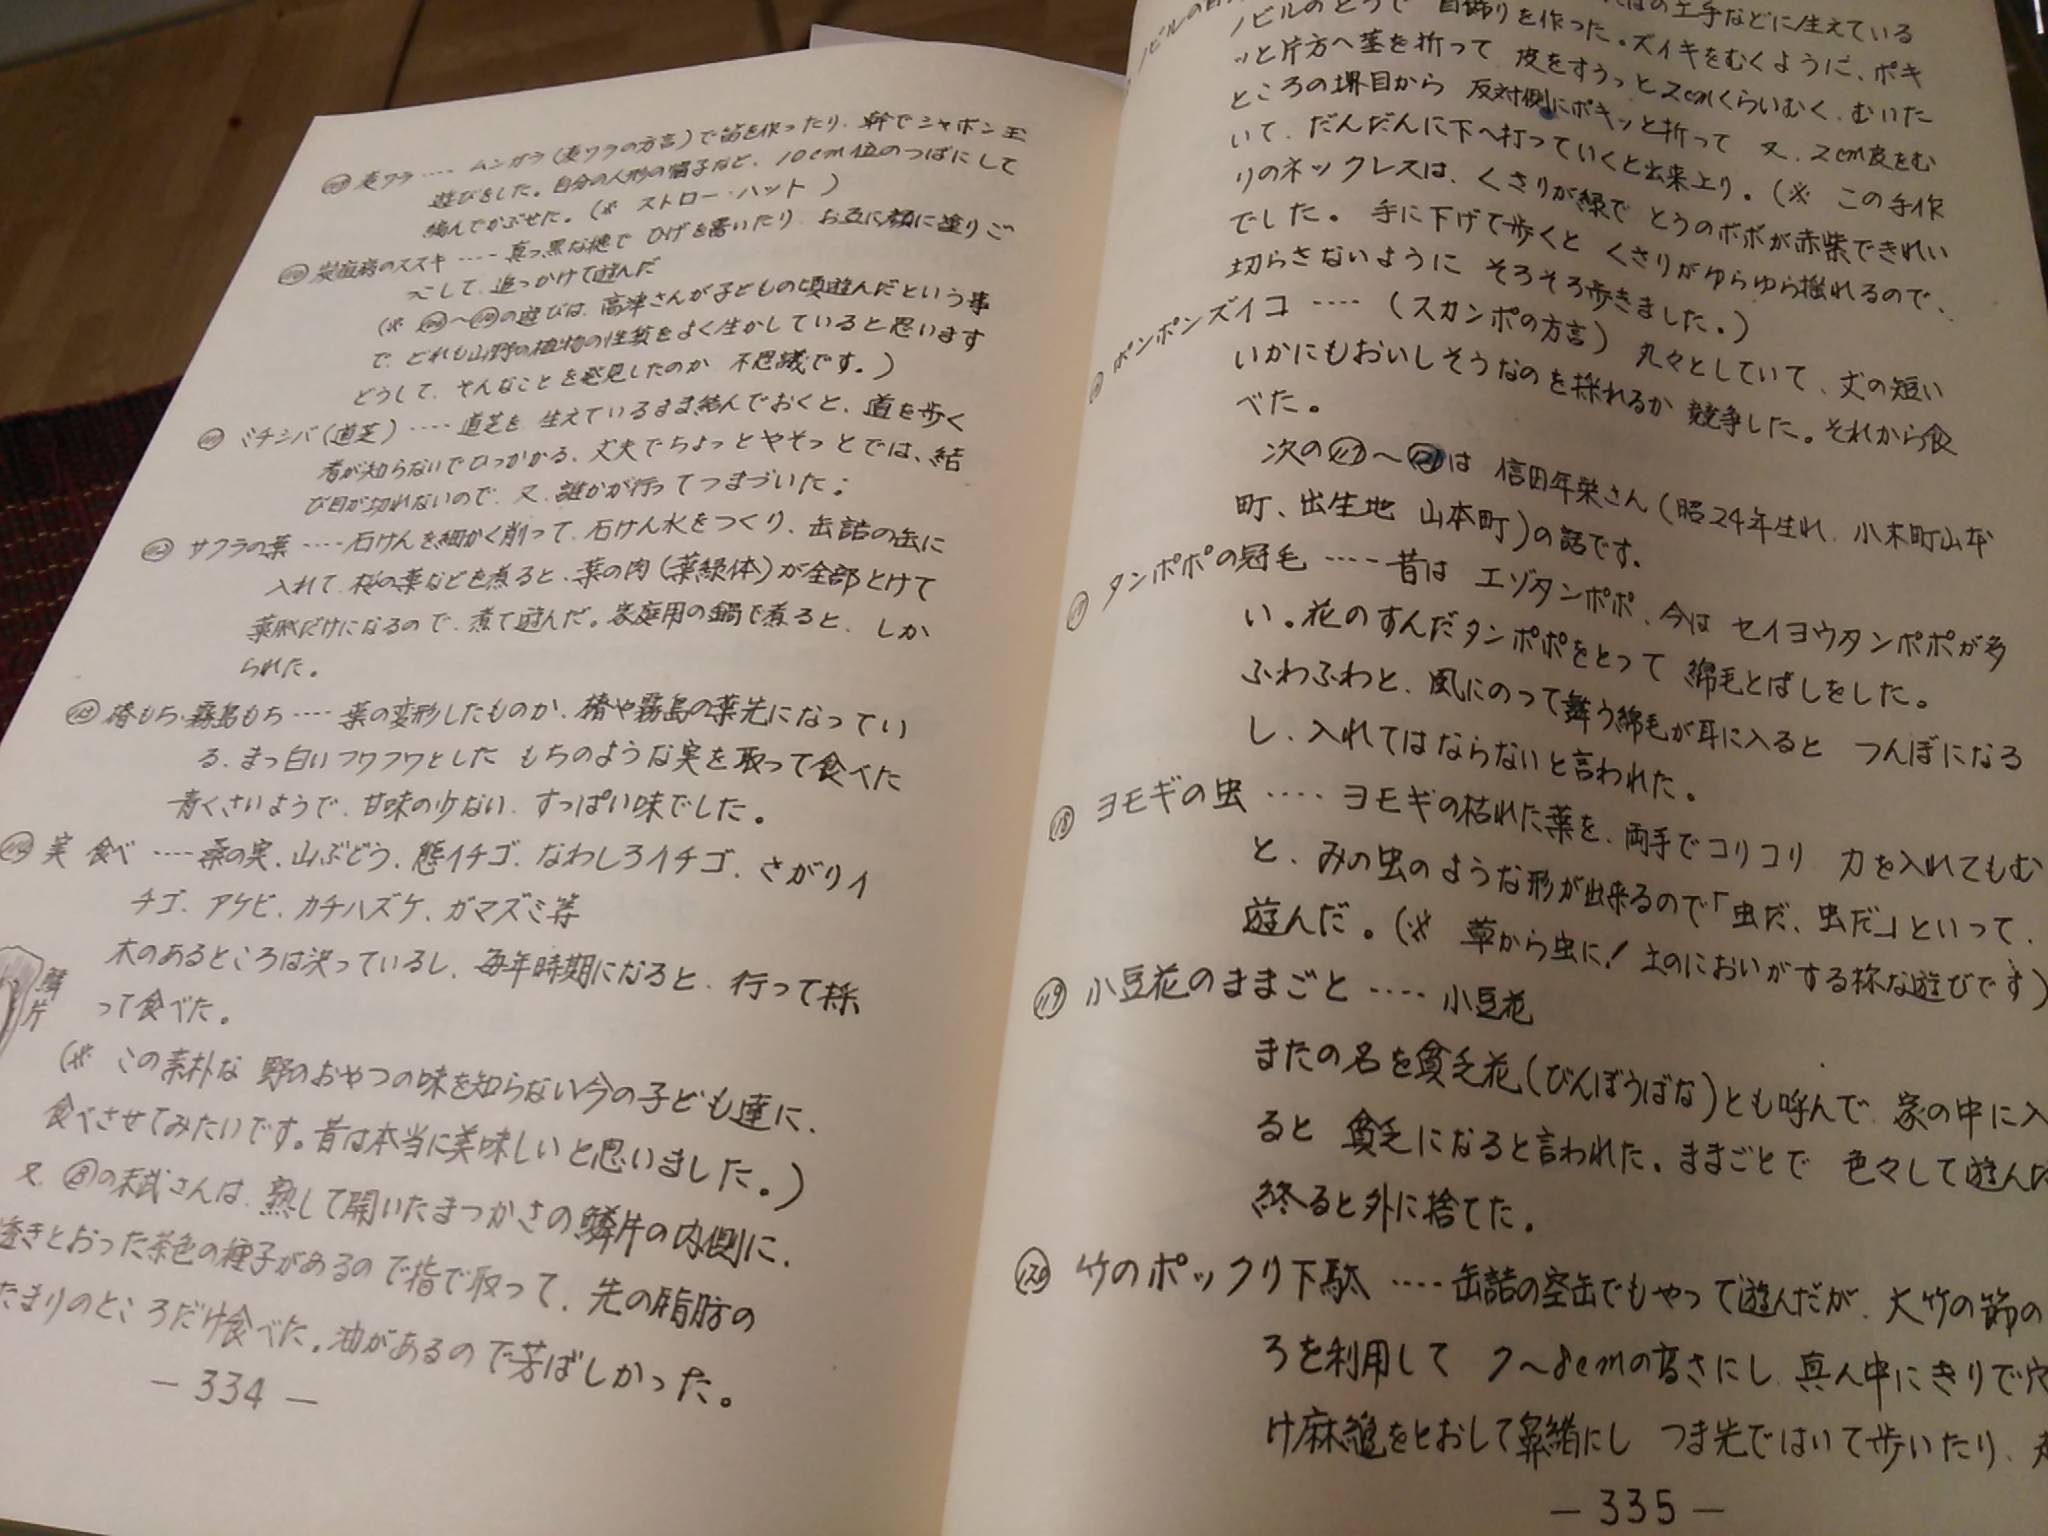 麦ワラ‥‥ムンガラ(麦ワラの方言)で笛を作ったり、幹でシャボン玉
遊びをした。自分の人形の帽子など、10cm位のつばにして
編んでかぶせた。(※ ストロー・ハット)
ススキ‥‥真っ黒な穂で ひげを書いたり、お互に顔に塗りご
っこして、追っかけて遊んだ
(※ 〜の遊びは、高津さんが子どもの頃遊んだという事
で、どれも山野の植物の性質をよく生かしていると思います
どうして、そんなことを発見したのか 不思議です。)
ミチシバ(道芝)‥‥道芝を 生えているまま結んでおくと、道を歩く
者が知らないでひっかかる、丈夫でちょっとやそっとでは、結
び目が切れないので、又、誰かが行ってつまづいた。
サクラの葉‥‥石けんを細かく削って、石けん水をつくり、缶詰の缶に
入れて、桜の葉などを煮ると、葉の肉(葉緑体)が全部とけて
葉脈だけになるので、煮て遊んだ。家庭用の鍋で煮ると、しか
られた。
椿もち・霧島もち‥‥葉の変形したものか、椿や霧島の葉先になってい
る、まっ白いフワフワとした もちのような実を取って食べた
青くさいようで、甘味の少ない、すっぱい味でした。
実 食べ‥‥桑の実、山ぶどう、熊イチゴ、なわしろイチゴ、さがりイ
チゴ、アケビ、カチハズケ、ガマズミ等
木のあるところは決っているし、毎年時期になると、行って採
って食べた。
鱗片
(※ この素朴な 野のおやつの味を知らない今の子ども達に、
食べさせてみたいです。昔は本当に美味しいと思いました。)
又、⑧の末武さんは、熟して開いたまつかさの鱗片の内側に、
透きとおった茶色の種子があるので指で取って、先の脂肪の
たまりのところだけ食べた。油があるので芳ばしかった。
— 334 —
の土手などに生えている
ノビルのとうで 首飾りを作った。ズイキをむくように、ポキ
ッと片方へ茎を折って 皮をすうっと2cmくらいむく、むいた
ところの堺目から 反対側にポキッと折って 又、2cm皮をむ
いて、だんだんに下へ打っていくと出来上り。(※ この手作
りのネックレスは、くさりが緑で とうのボボが赤紫できれい
でした。手に下げて歩くと くさりがゆらゆら揺れるので、
切らさないように そろそろ歩きました。)
ポンポンズイコ‥‥(スカンポの方言) 丸々としていて、丈の短い
いかにもおいしそうなのを採れるか 競争した。それから食
べた。
次の⑰〜㉑は 信田年栄さん(昭24年生れ、小木町山本
町、出生地 山本町)の話です。
⑰ タンポポの冠毛‥‥昔は エゾタンポポ、今は セイヨウタンポポが多
い。花のすんだタンポポをとって 綿毛とばしをした。
ふわふわと、風にのって舞う綿毛が耳に入ると つんぼになる
し、入れてはならないと言われた。
⑱ ヨモギの虫‥‥ヨモギの枯れた葉を、両手でコリコリ 力を入れてもむ
と、みの虫のような形が出来るので「虫だ、虫だ」といって、
遊んだ。(※ 草から虫に! 土のにおいがする様な遊びです)
119 小豆花のままごと‥‥小豆花
またの名を貧乏花(びんぼうばな)とも呼んで、家の中に入
ると 貧乏になると言われた。ままごとで 色々して遊んだ
終ると外に捨てた。
120 竹のポックリ下駄‥‥缶詰の空缶でもやって遊んだが、大竹の節の
ろを利用して 7〜8cmの高さにし、真ん中にきりで穴
け麻縄をとおして鼻緒にし つま先ではいて歩いたり、走
— 335 —